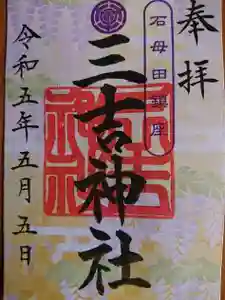 奉拝
石母田鎮座
三吉神社
三吉神社
令和五年五月五日